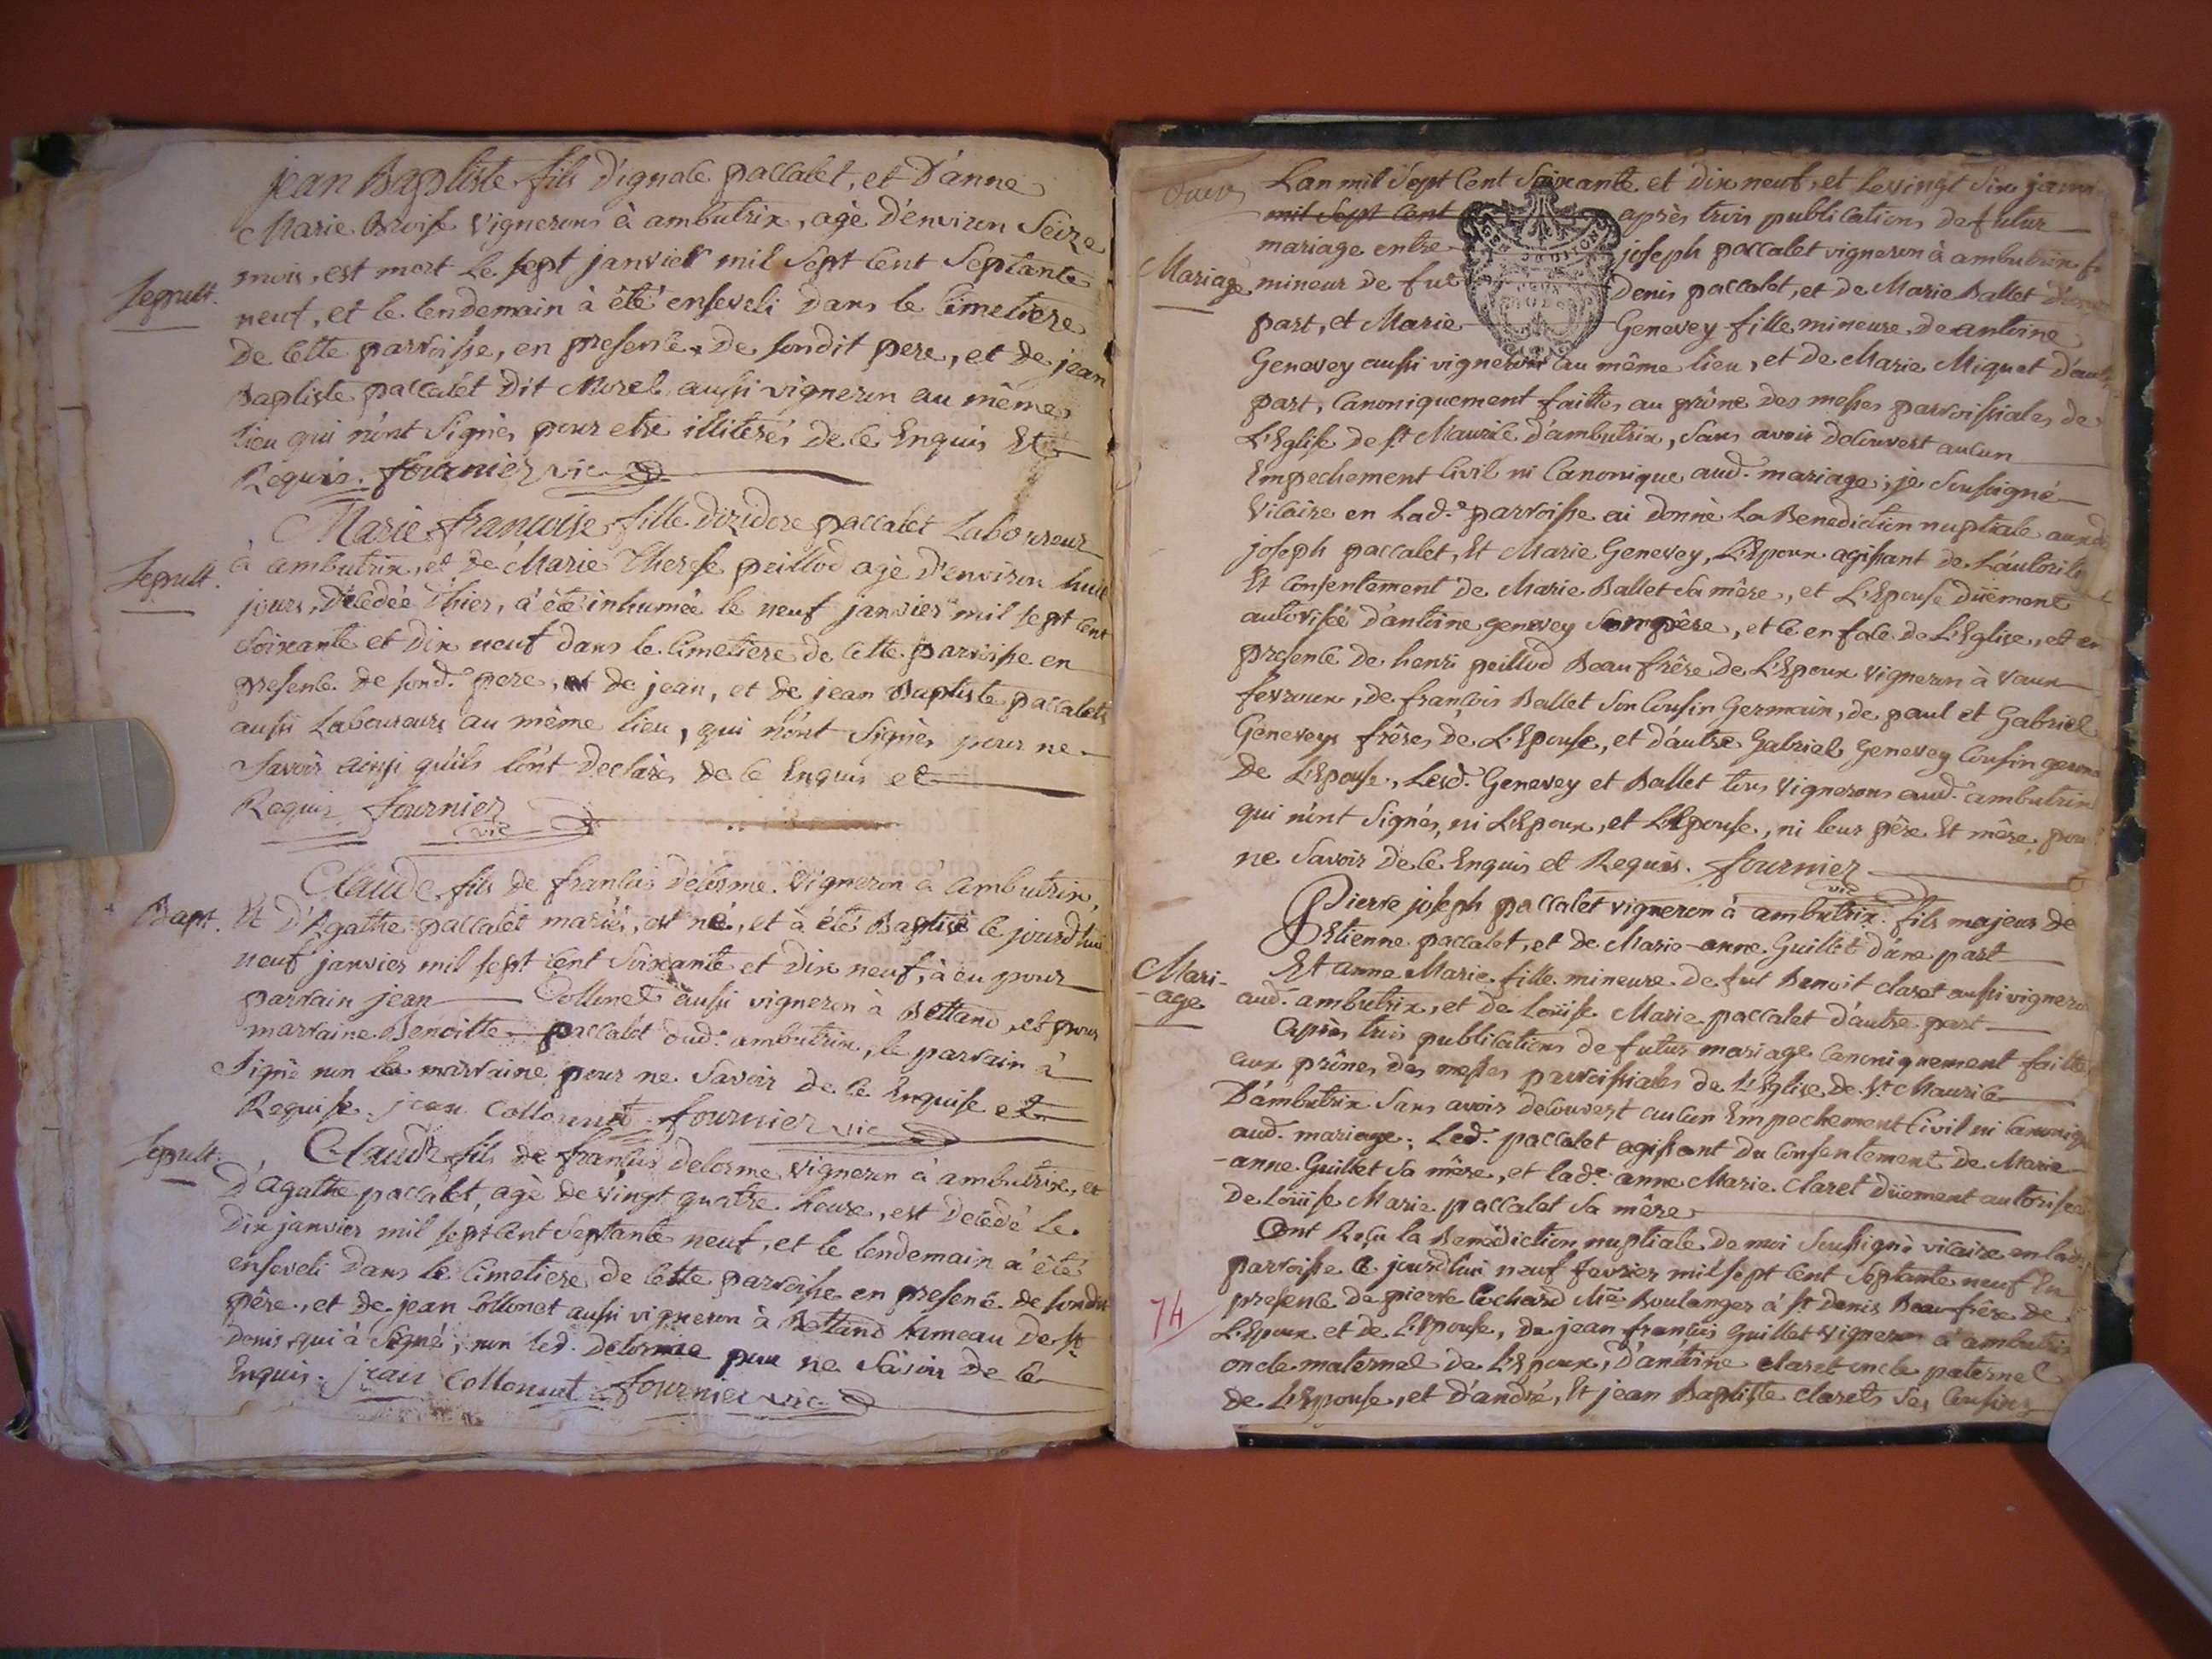 jean Baptiste fils D'ignace paccalet, et D'anne
Marie Broise Vignerons à ambutrix, agè D'environ Seize
Sepult.
mois, est mort Le sept janvier mil Sept Cent Septante
neuf, et le lendemain à été enseveli Dans le Cimetiere
De Cette parroisse, en presence De sondit pere, et de jean
Baptiste paccalet Dit Morel aussi vigneron au même
lieu qui n'ont Signès pour etre illiterés de ce Enquis Et
Requis. fournier vic
Marie françoise fille Dizidore paccalet Laboureur
Sepult.
à ambutrix, et de Marie Therese peillod agè D'environ huit
jours, Dècedée D'hier, à été inhumée le neuf janvier mil sept cent
Soixante et Dix neuf dans le Cimetiere de Cette parroisse en
presence de sond. pere, et de jean, et de jean Baptiste paccalets
aussi Laboureurs au même lieu, qui n'ont Signès pour ne
Savoir ainsi qu'ils l'ont Declarés de ce Enquis et
Requis fournier
vic
Claude fils de francois delorme Vigneron à ambutrix,
Bapt.
Et D'Agathe paccalet mariés, est né, et à été Baptisé le jourd'hui
neuf janvier mil sept Cent Soixante et Dix neuf, à eu pour
parrain jean Collonet aussi vigneron à Bettand, et pour
marraine Benoitte paccalet dud. ambutrix, le parrain à
Signé non la marraine pour ne Savoir de ce Enquise et
Requise. jean Collomet fournier vic
Sepult.
Claude fils de francois delorme Vigneron à ambutrix, et
D'agathe paccalet, agè de vingt quatre heure, est Decedé le
Dix janvier mil sept Cent Septante neuf, et le lendemain a été
enseveli Dans le Cimetiere de Cette parroisse en presence de sondit
père, et de jean Collonet aussi vigneron à Bettand hameau De St
Denis qui à Signé, non led. delorme pour ne Savoir De ce
Enquis. jean Collomet fournier vic
Lan mil Sept Cent Soixante et Dix neuf, et Le vingt Six janvi
mil Sept Cent après trois publications de futur
mariage entre joseph paccalet vigneron à ambutrix
Mariage
mineur de fut Denis paccalet, et de Marie Ballet d'une
part, et Marie Genevey fille mineure de antoine
Genevey aussi vigneron au même lieu, et de Marie Miquet d'autre
part, Canoniquement faittes au prône Des messes parroissiales de
L'Eglise de St Maurice d'ambutrix, Sans avoir decouvert aucun
Empechement Civil ni Canonique aud. mariage; je Soussigné
Vicaire en Lad.e parroisse ai Donnè La Benediction nuptiale aux d
joseph paccalet, Et Marie Genevey, L'Epoux agissant de L'autorité
Et Consentement de Marie Ballet Sa mère, et L'Epouse Düement
autorisée d'antoine genevey Son père, et ce en face de L'Eglise, et en
presence de henri peillod Beau frère de L'Epoux Vigneron à Vaux
fevroux, de francois Ballet Son Cousin Germain, de paul et Gabriel
Geneveys frères de L'Epouse, et d'autre Gabriel Genevey Cousin germ
De L'Epouse, Lesd. Genevey et Ballet tous Vignerons aud. ambutrix
qui n'ont Signés, ni L'Epoux, et L'Epouse, ni leur père Et mère pour
ne Savoir de ce Enquis et Requis. fournier
vic
Pierre joseph paccalet vigneron à ambutrix fils majeur de
Etienne paccalet, et de Marie-anne Guillet d'une part
Mari-
-age
Et anne Marie fille mineure de fut Benoit claret aussi vigneron
aud. ambutrix, et de Loüise Marie paccalet d'autre part
Après trois publications de futur mariage Canoniquement faittes
aux prônes des messes parroissiales de L'Eglise de St Maurice
D'ambutrix Sans avoir decouvert aucun Empechement Civil ni Canonique
aud. mariage; Led. paccalet agissant du Consentement de Marie
-anne Guillet Sa mère, et lad.e anne Marie Claret Düement autorisée
de Loüise Marie paccalet Sa mère
Ont Reçu la Benediction nuptiale de moi Soussigné vicaire en lad.
parroisse ce jourd'hui neuf fevrier mil sept Cent Septante neuf En
presence de pierre Cochard Me Boulanger à St Denis Beau frère de
74
L'Epoux et de L'Epouse, de jean francois Guillet Vigneron à ambutrix
oncle maternel de L'Epoux, D'antoine claret oncle paternel
de L'Epouse, et D'andré, Et jean Baptiste Clarets Ses Cousins